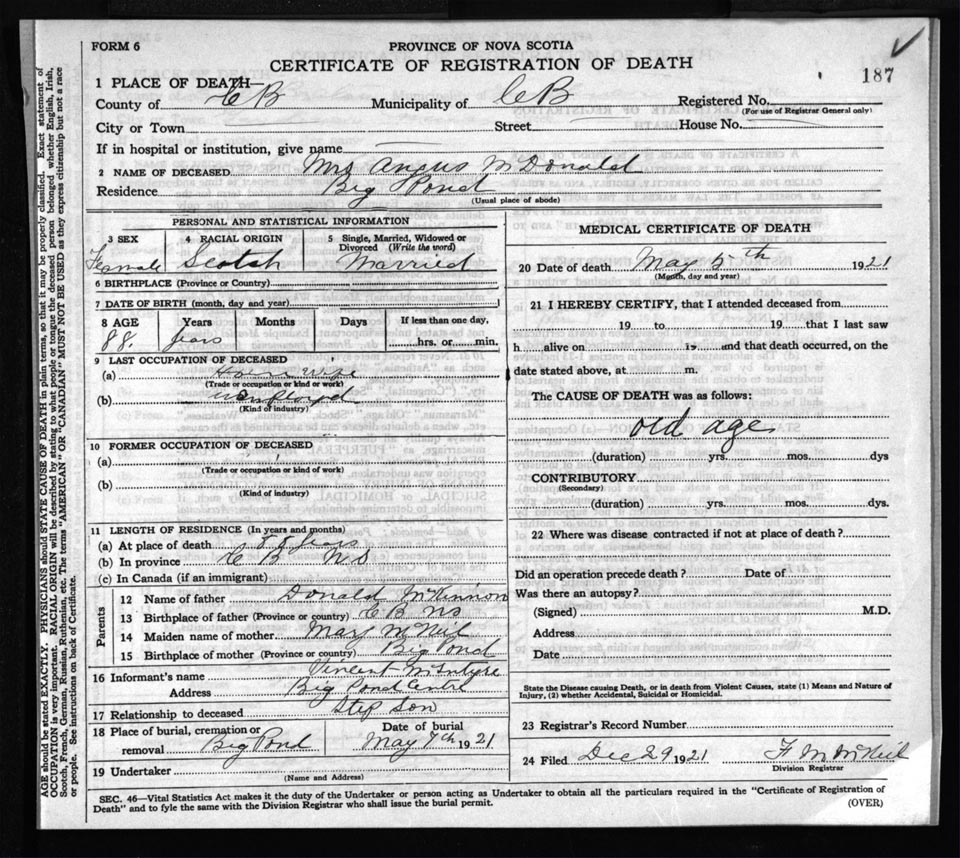 FORM 6
PROVINCE OF NOVA SCOTIA
CERTIFICATE OF REGISTRATION OF DEATH
187
1 PLACE OF DEATH—
County of C B Municipality of C B Registered No.
(For use of Registrar General only)
City or Town Street House No.
If in hospital or institution, give name
2 NAME OF DECEASED Mrs Angus McDonald
Residence Big Pond
(Usual place of abode)
PERSONAL AND STATISTICAL INFORMATION
3 SEX 4 RACIAL ORIGIN 5 Single, Married, Widowed or
Divorced (Write the word)
Female Scotch Married
6 BIRTHPLACE (Province or Country)
7 DATE OF BIRTH (month, day and year)
8 AGE Years Months Days If less than one day,
88 years hrs. or min.
9 LAST OCCUPATION OF DECEASED
(a) House wife
(Trade or occupation or kind or work)
(b)
(Kind of industry)
10 FORMER OCCUPATION OF DECEASED
(a)
(Trade or occupation or kind of work)
(b)
(Kind of industry)
11 LENGTH OF RESIDENCE (In years and months)
(a) At place of death 55 years
(b) In province C B N S
(c) In Canada (if an immigrant)
Parents
12 Name of father Donald McKinnon
13 Birthplace of father (Province or country) C B NS
14 Maiden name of mother Mary McNeil
15 Birthplace of mother (Province or country) Big Pond
16 Informant's name Vincent McIntyre
Address Big Pond Centre
17 Relationship to deceased Step Son
18 Place of burial, cremation or Date of burial
removal Big Pond May 7th 1921
19 Undertaker
(Name and Address)
MEDICAL CERTIFICATE OF DEATH
20 Date of death May 5th 1921
(Month, day and year)
21 I HEREBY CERTIFY, that I attended deceased from
19 to 19 that I last saw
h alive on 19 and that death occurred, on the
date stated above, at m.
The CAUSE OF DEATH was as follows:
old age
(duration) yrs. mos. dys
CONTRIBUTORY
(Secondary)
(duration) yrs. mos. dys.
22 Where was disease contracted if not at place of death?
Did an operation precede death? Date of
Was there an autopsy?
(Signed) M.D.
Address
Date
State the Disease causing Death, or in death from Violent Causes, state (1) Means and Nature of
Injury, (2) whether Accidental, Suicidal or Homicidal.
23 Registrar's Record Number
24 Filed Dec 29 1921 F M McNeil
Division Registrar
SEC. 46—Vital Statistics Act makes it the duty of the Undertaker or person acting as Undertaker to obtain all the particulars required in the "Certificate of Registration of
Death" and to fyle the same with the Division Registrar who shall issue the burial permit. (OVER)
AGE should be stated EXACTLY. PHYSICIANS should STATE CAUSE OF DEATH in plain terms, so that it may be properly classified. Exact statement of
OCCUPATION is very important. RACIAL ORIGIN will be described by stating to what people or tongue the deceased person belonged whether English, Irish,
Scotch, French, German, Russian, Ruthenian, etc. The terms "AMERICAN" OR "CANADIAN" MUST NOT BE USED as they express citizenship but not a race
or people. See instructions on back of Certificate.